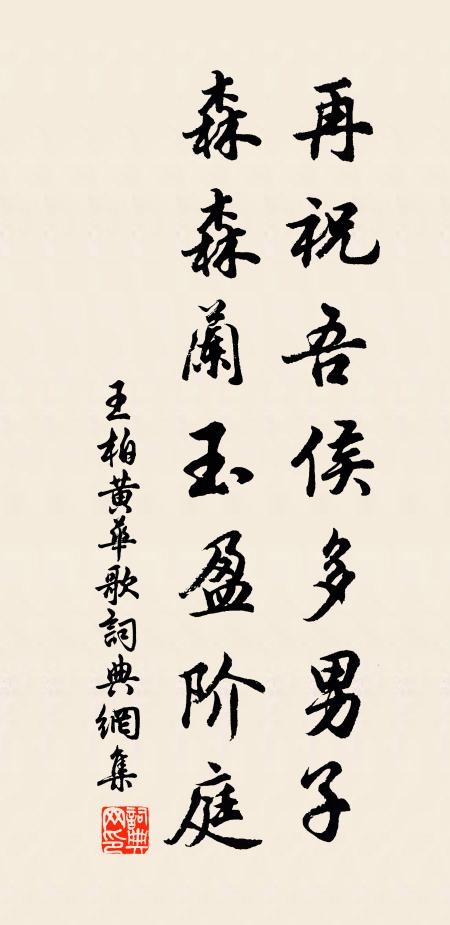 再祝吾侯多男子
森森蘭玉盈阶庭
王柏黄華歌詞典網集
詞典网印